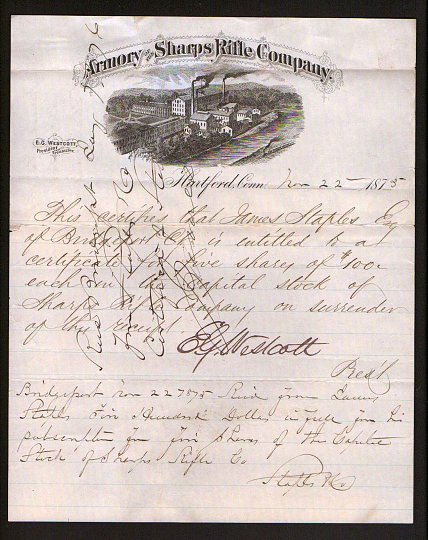 Armory of the Sharps Rifle Company.
E.G. Westcott,
President
Hartford, Conn. Nov 22 1875
This certifies that James Staples Esq
of Bridgeport Ct is entitled to a
certificate for five shares of $100
each in the Capital stock of
Sharps Rifle Company on surrender
of this receipt.
E G Westcott
Prest
Bridgeport Nov 22 1875 Recd from James
Staples Five Hundred Dollars in full for his
subscription for five shares of the Capital
Stock of Sharps Rifle Co
Staples & Co
Recd